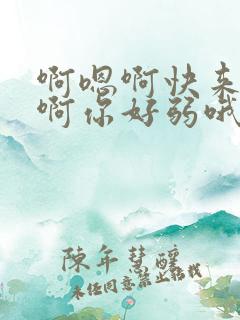 啊嗯啊快来
啊你好弱哦
陈年慧酿
未经同意禁止转载